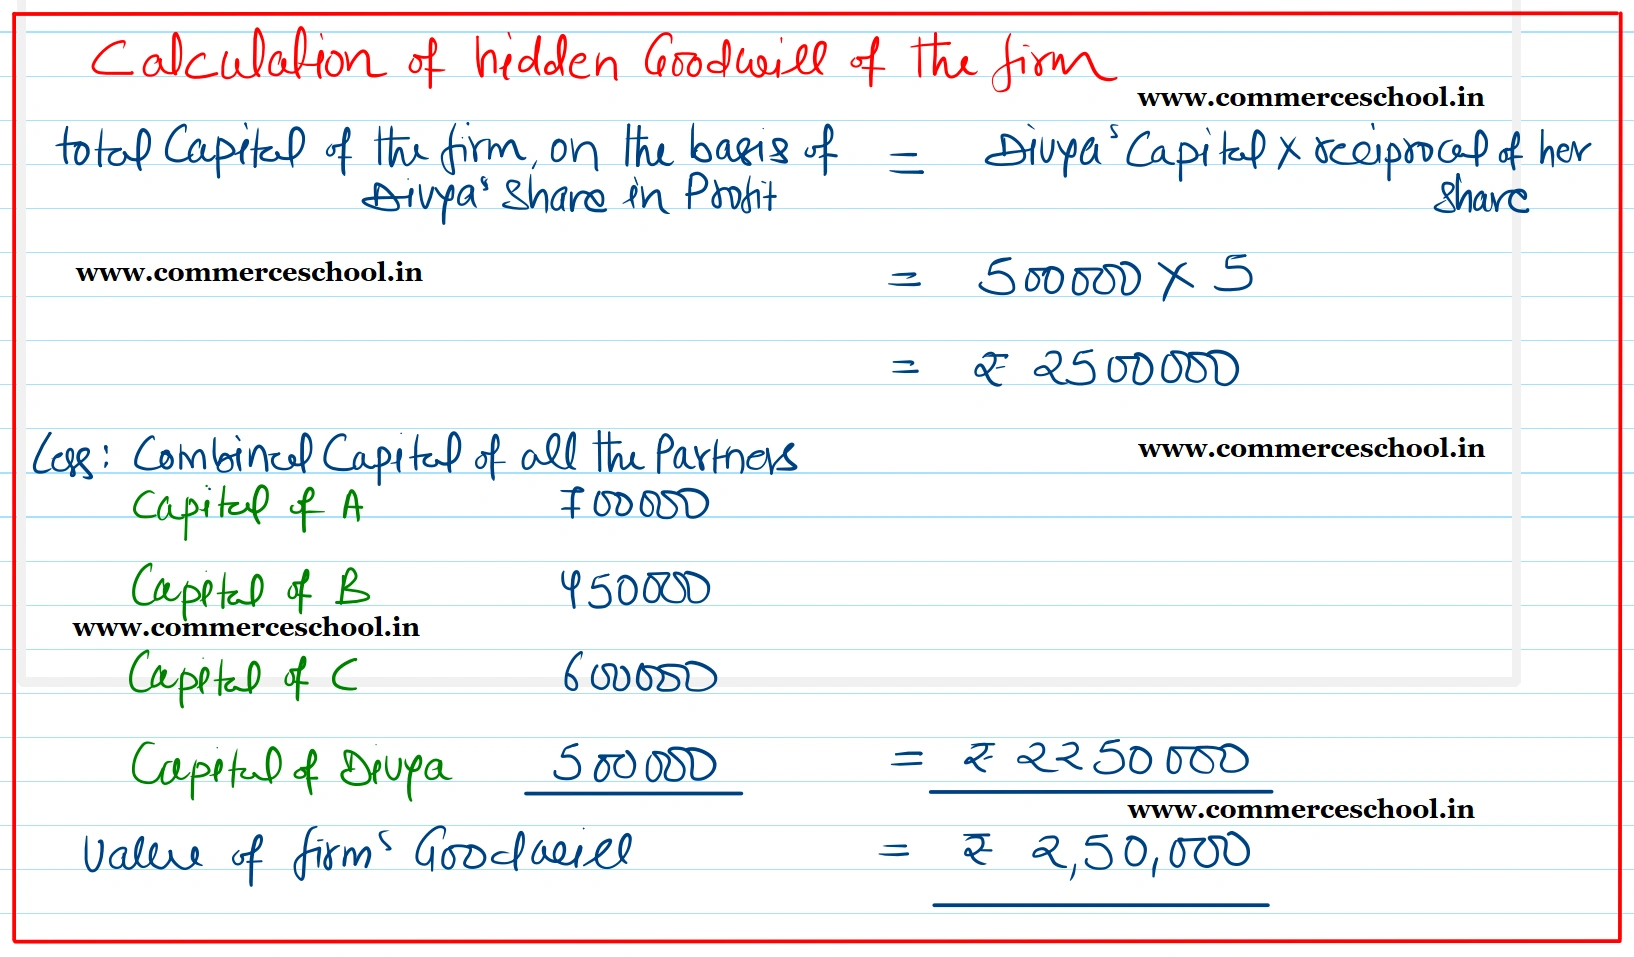 Calculation of hidden Goodwill of the firm
www.commerceschool.in
total Capital of the firm, on the basis of Divya's Share in Profit = Divya's Capital X reciprocal of her share
www.commerceschool.in
= 500000 X 5
= ₹ 2500000
Less: Combined Capital of all the Partners
www.commerceschool.in
Capital of A 700000
Capital of B 450000
www.commerceschool.in
Capital of C 600000
Capital of Divya 500000 = ₹ 2250000
www.commerceschool.in
Value of firm's Goodwill = ₹ 2,50,000